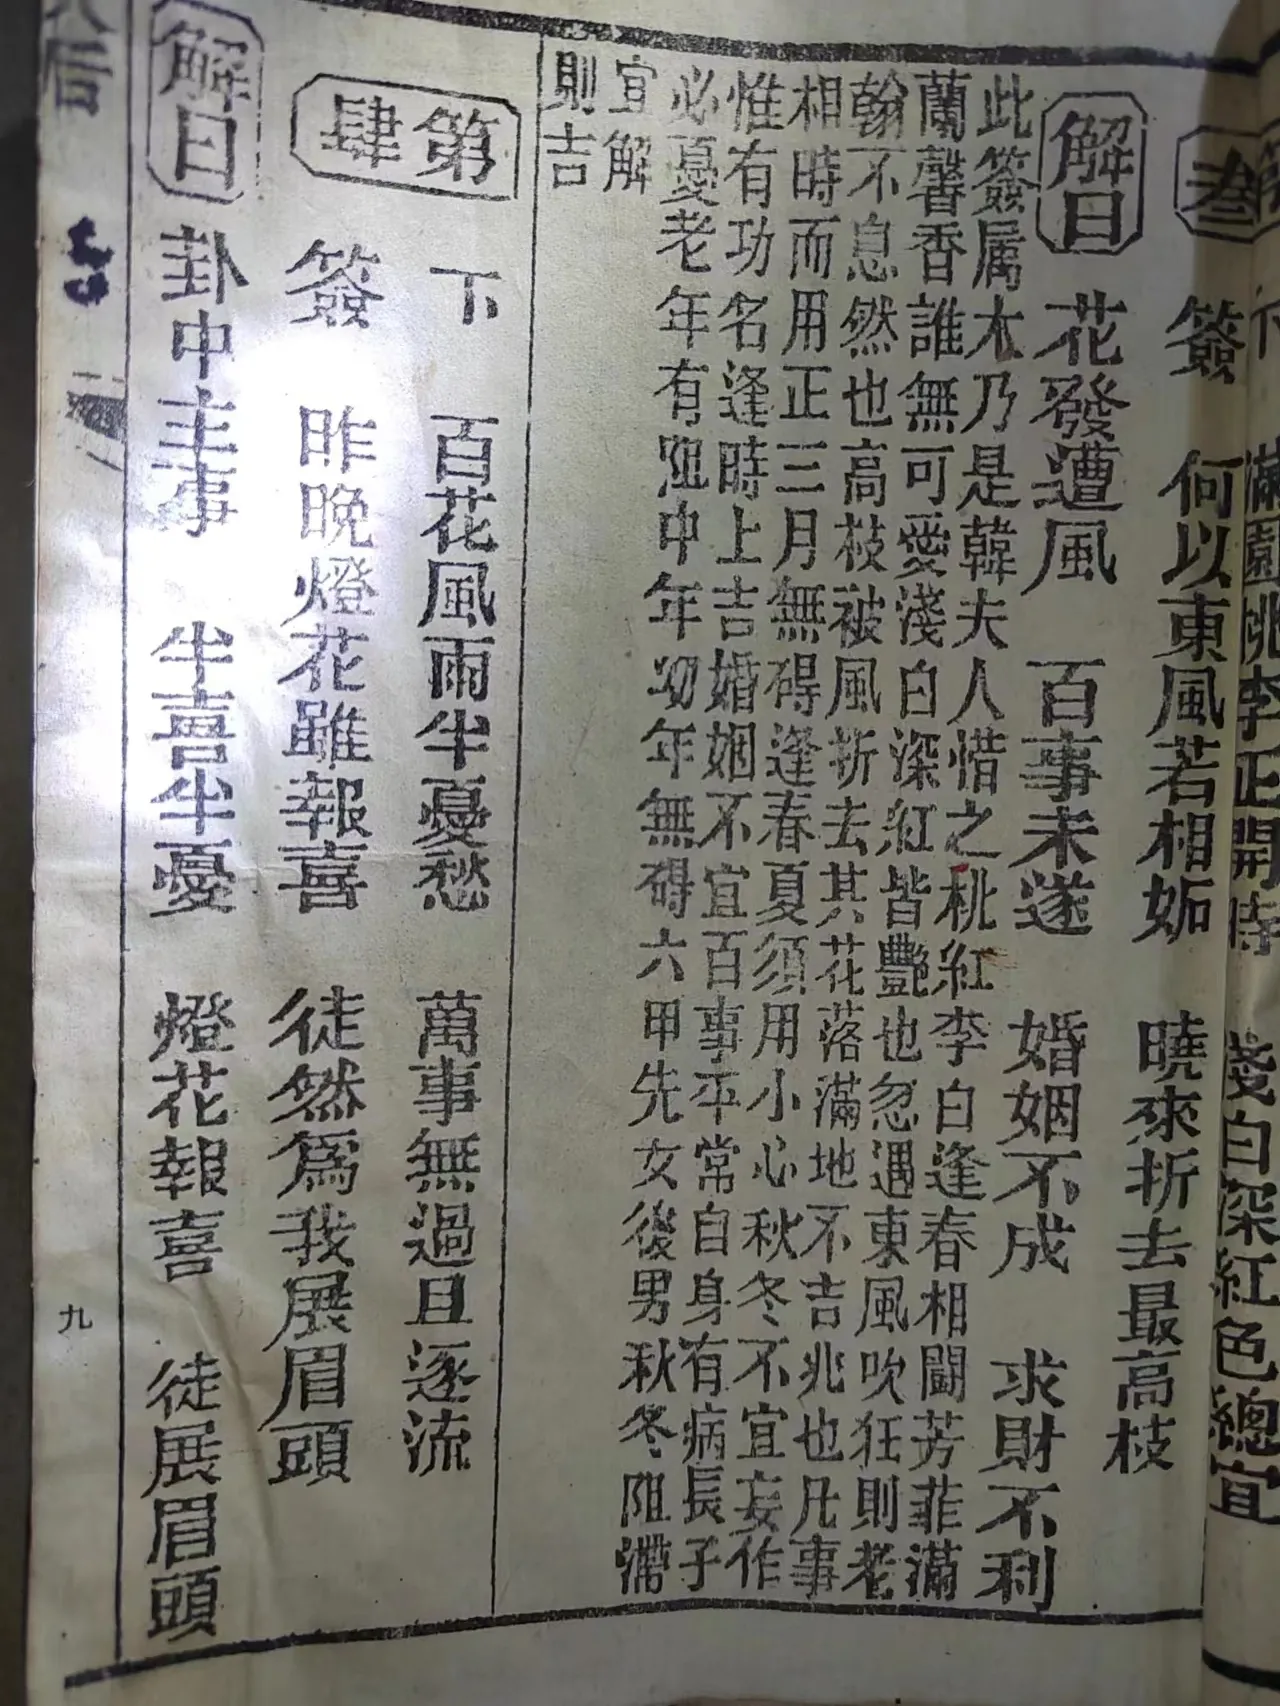 下 滿園桃李正開時 淺白深紅色總宜
叁
簽 何以東風若相妬 曉來折去最高枝
解曰 花發遭風 百事未遂 婚姻不成 求財不利
此簽属木乃是韓夫人惜之桃紅李白逢春相鬪芳菲滿
蘭馨香誰無可愛淺白深紅皆艷也忽遇東風吹狂則老
翰不息然也高枝被風折去其花落滿地不吉兆也凡事
相時而用正三月無碍逢春夏須用小心秋冬不宜妄作
惟有功名逢時上吉婚姻不宜百事平常自身有病長子
必憂老年有阻中年年幼年無碍六甲先女後男秋冬阻滯
宜解
則吉
第肆
下 百花風雨半憂愁 萬事無過且逐流
簽 昨晚燈花雖報喜 徒然為我展眉頭
解曰 卦中主事 半喜半憂 燈花報喜 徒展眉頭
后
九